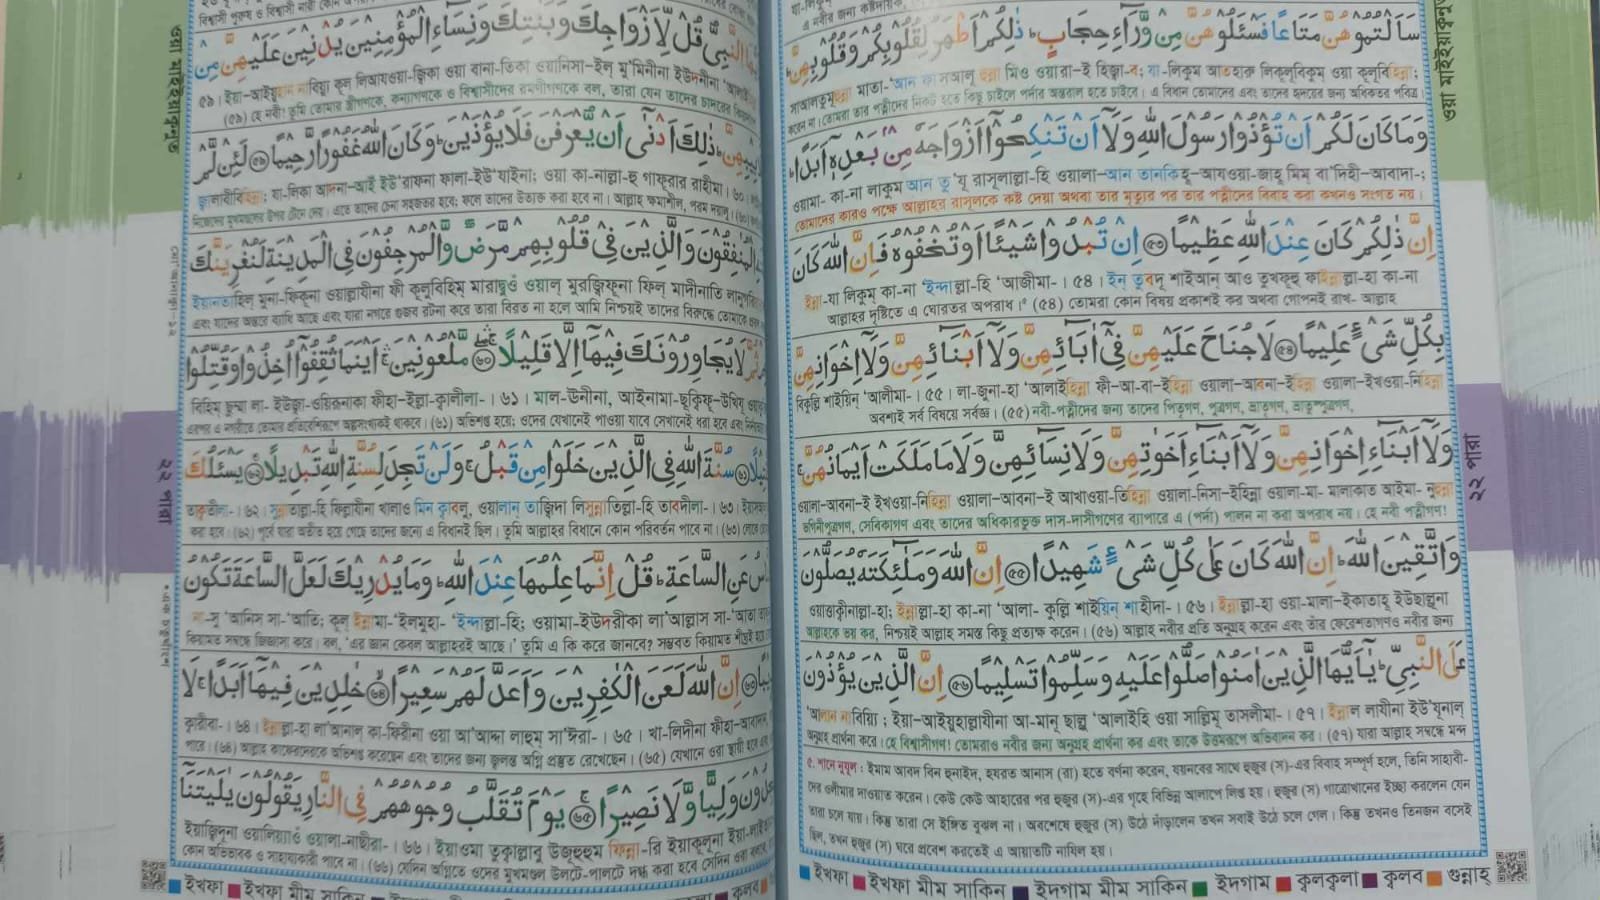 ওয়া মাইইয়াক্বনুত
سَاَلْتُمُوْهُنَّ مَتَاعًا فَسْـَٔلُوْهُنَّ مِنْ وَّرَآءِ حِجَابٍ ؕ ذٰلِكُمْ اَطْهَرُ لِقُلُوْبِكُمْ وَقُلُوْبِهِنَّ ؕ
সাআলতুমূহুন্না মাতা-'আন ফাসআলূ হুন্না মিও ওয়ারা-ই হিজ্বা-ব; যা-লিকুম আতহারু লিক্বুলূবিকুম ওয়া ক্বুলূবিহিন্না;
করেন না। তোমরা তার পত্নীদের নিকট হতে কিছু চাইলে পর্দার অন্তরাল হতে চাইবে। এ বিধান তোমাদের এবং তাদের হৃদয়ের জন্য অধিকতর পবিত্র।
وَمَا كَانَ لَكُمْ اَنْ تُؤْذُوْا رَسُوْلَ اللّٰهِ وَلَآ اَنْ تَنْكِحُوْٓا اَزْوَاجَهٗ مِنْۢ بَعْدِهٖٓ اَبَدًا ؕ
ওয়ামা- কা-না লাকুম আন তু'যূ রাসূলাল্লা-হি ওয়ালা-আন তানকিহূ-আযওয়া-জাহূ মিম্ বা'দিহী-আবাদা-;
তোমাদের কারও পক্ষে আল্লাহর রাসূলকে কষ্ট দেয়া অথবা তার মৃত্যুর পর তার পত্নীদের বিবাহ করা কখনও সংগত নয়।
اِنَّ ذٰلِكُمْ كَانَ عِنْدَ اللّٰهِ عَظِيْمًا ﴿۵۳﴾ اِنْ تُبْدُوْا شَيْـًٔا اَوْ تُخْفُوْهُ فَاِنَّ اللّٰهَ كَانَ
ইন্না-যা লিকুম কা-না 'ইন্দাল্লা-হি 'আজীমা-। ৫৪। ইন্ তুবদূ শাইআন্ আও তুখফূহু ফাইন্নাল্লা-হা কা-না
আল্লাহর দৃষ্টিতে এ ঘোরতর অপরাধ। (৫৪) তোমরা কোন বিষয় প্রকাশই কর অথবা গোপনই রাখ- আল্লাহ
بِكُلِّ شَىْءٍ عَلِيْمًا ﴿۵۴﴾ لَا جُنَاحَ عَلَيْهِنَّ فِىْٓ اٰبَآئِهِنَّ وَلَآ اَبْنَآئِهِنَّ وَلَآ اِخْوَانِهِنَّ
বিকুল্লি শাইয়িন্ 'আলীমা-। ৫৫। লা-জুনা-হা 'আলাইহিন্না ফী-আ-বা-ইহিন্না ওয়ালা-আবনা-ইহিন্না ওয়ালা-ইখওয়া-নিহিন্না
অবশ্যই সর্ব বিষয়ে সর্বজ্ঞ। (৫৫) নবী-পত্নীদের জন্য তাদের পিতৃগণ, পুত্রগণ, ভ্রাতৃগণ, ভ্রাতুষ্পুত্রগণ,
وَلَآ اَبْنَآءِ اِخْوَانِهِنَّ وَلَآ اَبْنَآءِ اَخَوٰتِهِنَّ وَلَا نِسَآئِهِنَّ وَلَا مَا مَلَكَتْ اَيْمَانُهُنَّ ۚ
ওয়ালা-আবনা-ই ইখওয়া-নিহিন্না ওয়ালা-আবনা-ই আখাওয়া-তিহিন্না ওয়ালা-নিসা-ইহিন্না ওয়ালা-মা- মালাকাত আইমা- নুহুন্না
ভগিনীপুত্রগণ, সেবিকাগণ এবং তাদের অধিকারভুক্ত দাস-দাসীগণের ব্যাপারে এ (পর্দা) পালন না করা অপরাধ নয়। হে নবী পত্নীগণ!
وَاتَّقِيْنَ اللّٰهَ ؕ اِنَّ اللّٰهَ كَانَ عَلٰى كُلِّ شَىْءٍ شَهِيْدًا ﴿۵۵﴾ اِنَّ اللّٰهَ وَمَلٰٓئِكَتَهٗ يُصَلُّوْنَ
ওয়াত্তাক্বীনাল্লা-হা; ইন্নাল্লা-হা কা-না 'আলা- কুল্লি শাইয়িন্ শাহীদা-। ৫৬। ইন্নাল্লা-হা ওয়া-মালা-ইকাতাহূ ইউছাল্লূনা
আল্লাহকে ভয় কর, নিশ্চয়ই আল্লাহ সমস্ত কিছু প্রত্যক্ষ করেন। (৫৬) আল্লাহ নবীর প্রতি অনুগ্রহ করেন এবং তাঁর ফেরেশতাগণও নবীর জন্য
عَلَى النَّبِىِّ ؕ يٰٓاَيُّهَا الَّذِيْنَ اٰمَنُوْا صَلُّوْا عَلَيْهِ وَسَلِّمُوْا تَسْلِيْمًا ﴿۵۶﴾ اِنَّ الَّذِيْنَ يُؤْذُوْنَ
'আলান নাবিয়্যি; ইয়া-আইয়ুহাল্লাযীনা আ-মানূ ছাল্লূ 'আলাইহি ওয়া সাল্লিমূ তাসলীমা-। ৫৭। ইন্নাল লাযীনা ইউ'যূনাল্
অনুগ্রহ প্রার্থনা করে। হে বিশ্বাসীগণ! তোমরাও নবীর জন্য অনুগ্রহ প্রার্থনা কর এবং তাকে উত্তমরূপে অভিবাদন কর। (৫৭) যারা আল্লাহ সম্বন্ধে মন্দ
৫. শানে নুযূল : ইমাম আবদ বিন হুনাইদ, হযরত আনাস (রা) হতে বর্ণনা করেন, যয়নবের সাথে হুজুর (স)-এর বিবাহ সম্পূর্ণ হলে, তিনি সাহাবী-
দের ওলীমার দাওয়াত করেন। কেউ কেউ আহারের পর হুজুর (স)-এর গৃহে বিভিন্ন আলাপে লিপ্ত হয়। হুজুর (স) গাত্রোত্থানের ইচ্ছা করলেন যেন
তারা চলে যায়। কিন্তু তারা সে ইঙ্গিত বুঝল না। অবশেষে হুজুর (স) উঠে দাঁড়ালেন তখন সবাই উঠে চলে গেল। কিন্তু তখনও তিনজন বসেই
ছিল, তখন হুজুর (স) ঘরে প্রবেশ করতেই এ আয়াতটি নাযিল হয়।
২২ পারা
ইখফা ইখফা মীম সাকিন ইদগাম মীম সাকিন ইদগাম ক্বলক্বলা ক্বলব গুন্নাহ্
ওয়া মাইইয়াক্বনুত
النَّبِىُّ قُلْ لِّاَزْوَاجِكَ وَبَنٰتِكَ وَنِسَآءِ الْمُؤْمِنِيْنَ يُدْنِيْنَ عَلَيْهِنَّ مِنْ
৫৯। ইয়া-আইয়ুহান নাবিয়্যু ক্বুল লিআযওয়া-জ্বিকা ওয়া বানা-তিকা ওয়ানিসা-ইল্ মু'মিনীনা ইউদনীনা 'আলাইহিন্না
(৫৯) হে নবী! তুমি তোমার স্ত্রীগণকে, কন্যাগণকে ও বিশ্বাসীদের রমণীগণকে বল, তারা যেন তাদের চাদরের
ذٰلِكَ اَدْنٰٓى اَنْ يُّعْرَفْنَ فَلَا يُؤْذَيْنَ ؕ وَكَانَ اللّٰهُ غَفُوْرًا رَّحِيْمًا ﴿۵۹﴾ لَئِنْ لَّمْ
জ্বালাবীবিহিন্না; যা-লিকা আদনা-আই ইউ'রাফনা ফালা-ইউ'যাইনা; ওয়া কা-নাল্লা-হু গাফূরার রাহীমা। ৬০।
নিজেদের মুখমণ্ডলের উপর টেনে দেয়। এতে তাদের চেনা সহজতর হবে; ফলে তাদের উত্যক্ত করা হবে না। আল্লাহ ক্ষমাশীল, পরম দয়ালু। (৬০)
الْمُنٰفِقُوْنَ وَالَّذِيْنَ فِىْ قُلُوْبِهِمْ مَّرَضٌ وَّالْمُرْجِفُوْنَ فِى الْمَدِيْنَةِ لَنُغْرِيَنَّكَ
ইয়ানতাহিল্ মুনা-ফিক্বূনা ওয়াল্লাযীনা ফী ক্বুলূবিহিম্ মারাদ্বুওঁ ওয়াল্ মুরজ্বিফূনা ফিল্ মাদীনাতি
এবং যাদের অন্তরে ব্যাধি আছে এবং যারা নগরে গুজব রটনা করে তারা বিরত না হলে আমি নিশ্চয়ই তাদের বিরুদ্ধে তোমাকে
لَا يُجَاوِرُوْنَكَ فِيْهَآ اِلَّا قَلِيْلًا ﴿۶۰﴾ مَّلْعُوْنِيْنَ ۛۚ اَيْنَمَا ثُقِفُوْٓا اُخِذُوْا وَقُتِّلُوْا
বিহিম্ ছুম্মা লা- ইউজ্বা-ওয়িরূনাকা ফীহা-ইল্লা-ক্বালীলা-। ৬১। মাল-ঊনীনা, আইনামা-ছুক্বিফূ-উখিযূ
এরপর এ নগরীতে তোমার প্রতিবেশীরূপে অল্পসংখ্যকই থাকবে। (৬১) অভিশপ্ত হয়ে; ওদের যেখানেই পাওয়া যাবে সেখানেই ধরা হবে এবং
﴿۶۱﴾ سُنَّةَ اللّٰهِ فِى الَّذِيْنَ خَلَوْا مِنْ قَبْلُ ۚ وَلَنْ تَجِدَ لِسُنَّةِ اللّٰهِ تَبْدِيْلًا ﴿۶۲﴾ يَسْـَٔلُكَ
তাক্বতীলা-। ৬২। সুন্নাতাল্লা-হি ফিল্লাযীনা খালাও মিন ক্বাবলু, ওয়ালান্ তাজ্বিদা লিসুন্নাতিল্লা-হি তাবদীলা-। ৬৩।
করা হবে। (৬২) পূর্বে যারা অতীত হয়ে গেছে তাদের জন্যে এ বিধানই ছিল। তুমি আল্লাহর বিধানে কোন পরিবর্তন পাবে না। (৬৩)
عَنِ السَّاعَةِ ؕ قُلْ اِنَّمَا عِلْمُهَا عِنْدَ اللّٰهِ ؕ وَمَا يُدْرِيْكَ لَعَلَّ السَّاعَةَ تَكُوْنُ
না-সু 'আনিস সা-'আতি; ক্বুল্ ইন্নামা-'ইলমুহা- 'ইন্দাল্লা-হি; ওয়ামা-ইউদরীকা লা'আল্লাস সা-'আতা
কিয়ামত সম্বন্ধে জিজ্ঞাসা করে। বল, 'এর জ্ঞান কেবল আল্লাহরই আছে।' তুমি এ কি করে জানবে? সম্ভবত কিয়ামত শীঘ্রই
﴿۶۳﴾ اِنَّ اللّٰهَ لَعَنَ الْكٰفِرِيْنَ وَاَعَدَّ لَهُمْ سَعِيْرًا ﴿۶۴﴾ خٰلِدِيْنَ فِيْهَآ اَبَدًا ۚ لَا
ক্বারীবা-। ৬৪। ইন্নাল্লা-হা লা'আনাল্ কা-ফিরীনা ওয়া আ'আদ্দা লাহুম্ সা'ঈরা-। ৬৫। খা-লিদীনা ফীহা-আবাদান,
পারে। (৬৪) আল্লাহ কাফেরদেরকে অভিশপ্ত করেছেন এবং তাদের জন্য জ্বলন্ত অগ্নি প্রস্তুত রেখেছেন। (৬৫) যেখানে ওরা স্থায়ী হবে
وَلِيًّا وَّلَا نَصِيْرًا ﴿۶۵﴾ يَوْمَ تُقَلَّبُ وُجُوْهُهُمْ فِى النَّارِ يَقُوْلُوْنَ يٰلَيْتَنَآ
ইয়াজ্বিদূনা ওয়ালিয়্যাওঁ ওয়ালা-নাছীরা-। ৬৬। ইয়াওমা তুক্বাল্লাবু উজূহুহুম ফিন্না-রি ইয়াক্বূলূনা
কোন অভিভাবক ও সাহায্যকারী পাবে না। (৬৬) যেদিন অগ্নিতে ওদের মুখমণ্ডল উলটে-পালটে দগ্ধ করা হবে সেদিন ওরা
২২ পারা
ইখফা ইখফা মীম সাকিন ক্বলব